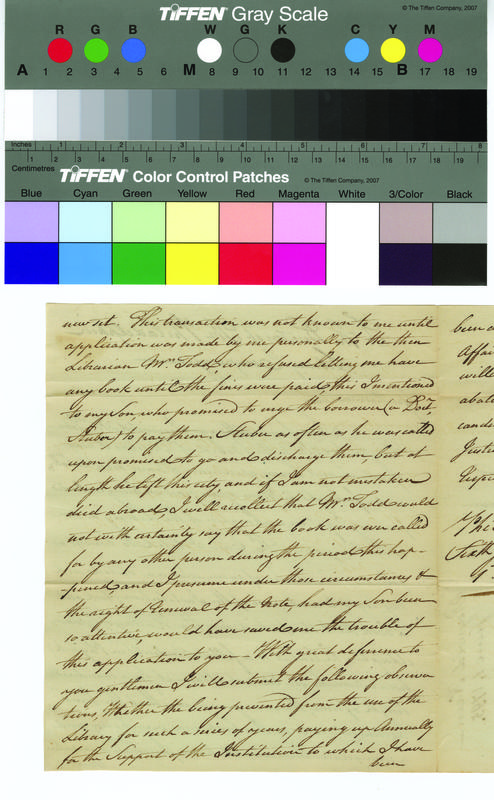 TIFFEN Gray Scale
© The Tiffen Company, 2007
R G B W G K C Y M
A 1 2 3 4 5 6 M 8 9 10 11 12 13 14 15 B 17 18 19
Inches 1 2 3 4 5 6 7 8
Centimetres 1 2 3 4 5 6 7 8 9 10 11 12 13 14 15 16 17 18 19
TIFFEN Color Control Patches
© The Tiffen Company, 2007
Blue Cyan Green Yellow Red Magenta White 3/Color Black
new set. This transaction was not known to me until
application was made by me personally to the then
Librarian Mr. Todd, who refused letting me have
any book until the fines were paid, this I mentioned
to my Son, who promised to urge the borrower (a Doct
Stuber) to pay them. Stuber as often as he was called
upon promised to go and discharge them, but at
length he left this city, and if I am not mistaken
died abroad, I well recollect that Mr. Todd could
not with certainty say that the book was ever called
for by any other person during the period this hap-
pened, and I presume under those circumstances &
the right of renewal of the Note, had my Son been
so attentive would have saved me the trouble of
this application to you - With great deference to
you gentlemen I will submit the following observa
tions, Whether the being prevented from the use of the
Library for such a series of years, paying up Annually
for the Support of the Institution to which I have
been
been
Affai
will
abat
cand
Justi
Respe
Phi
Sixth